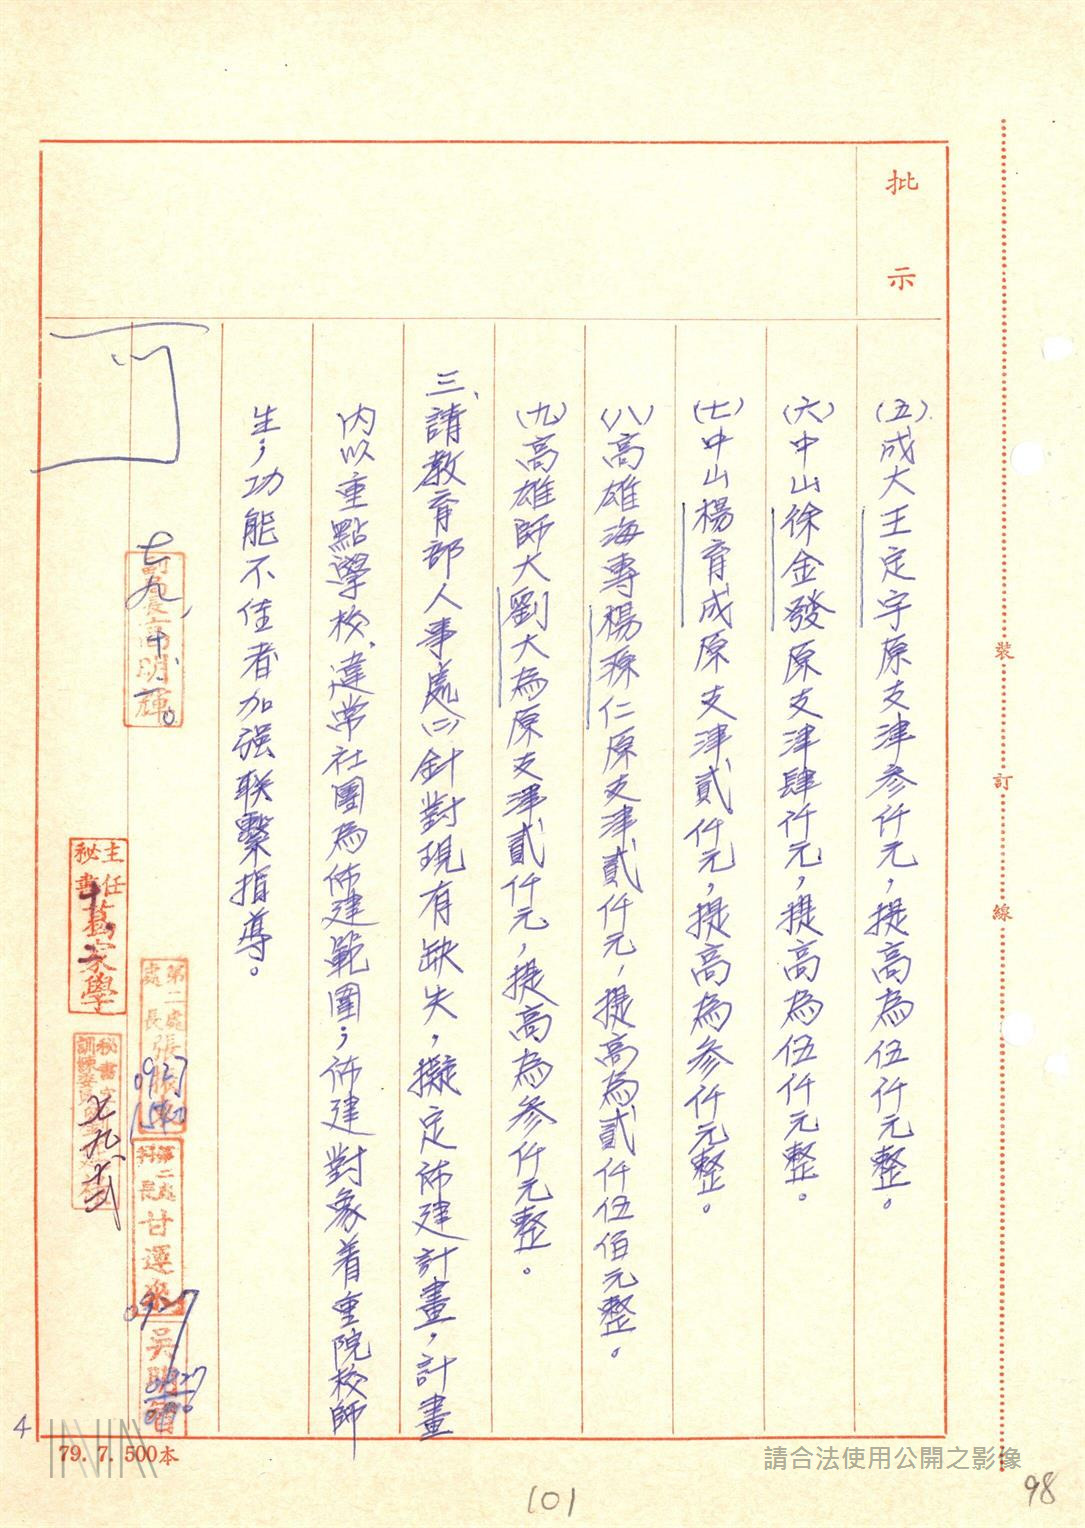 批示
(五)成大王定宇原支津參仟元，提高為伍仟元整。
(六)中山徐金發原支津肆仟元，提高為伍仟元整。
(七)中山楊育成原支津貳仟元，提高為參仟元整。
(八)高雄海專楊孫仁原支津貳仟元，提高為貳仟伍佰元整。
(九)高雄師大劉大為原支津貳仟元，提高為參仟元整。
三、請教育部人事處(二)針對現有缺失，擬定佈建計畫，計畫
內以重點學校、違常社團為佈建範圍；佈建對象着重院校師
生；功能不佳者加强联繫指導。
可
副局長高明輝
七九、十、
主任秘書葛家學
第二處處長張
0927
1540
第二處科長甘運
0927
吳
秘書室訓練委員
七九、
裝訂線
79. 7. 500本
請合法使用公開之影像
4
101
98